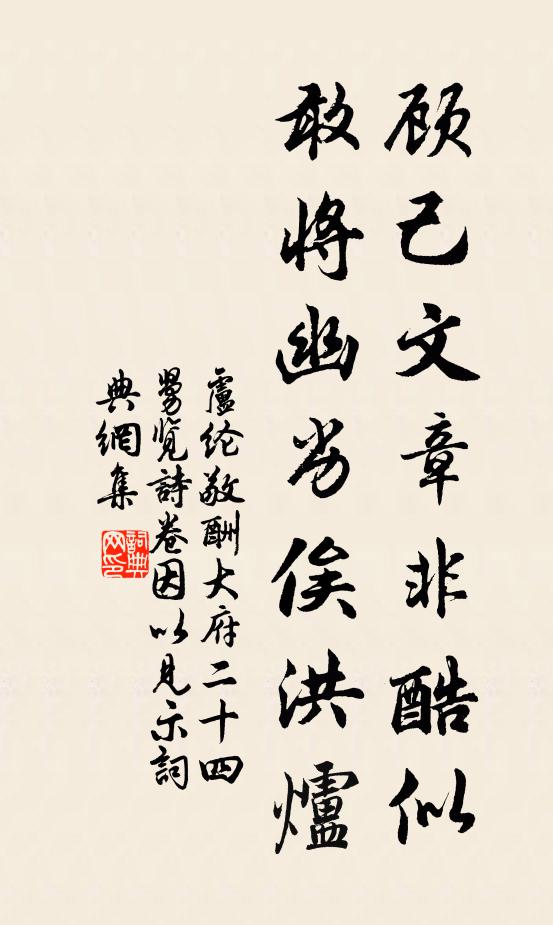 顾己文章非酷似
敢将幽劣俟洪爐
盧纶敬酬大府二十四
舅览詩卷因以见示詞
典網集
詞典
网印